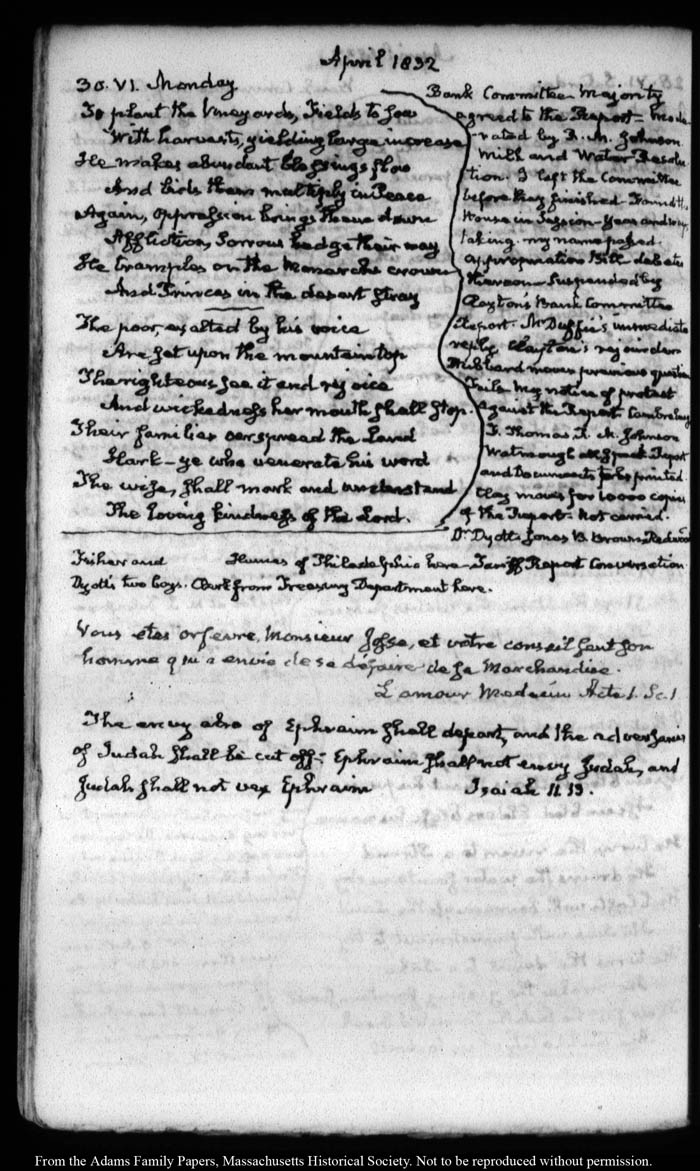 April 1832
30. VI. Monday
To plant the Vineyards, Fields to sow
With harvests, yielding large increase
He makes abundant blessings flow
And bids them multiply in Peace
Again, oppression brings them down
Affliction, Sorrows hedge their way
He tramples on the Monarchs crown
And Princes in the desart stray
The poor, exalted by his voice
Are set upon the mountain top
The righteous see it and rejoice
And wickedness her mouth shall stop.
Their families overspread the Land
Hark—ye who venerate his word
The wise, shall mark and understand
The loving kindness of the Lord.
Bank Committee Majority
agreed to the Report— mode-
rated by R. M. Johnson
Milk and Water Resolu-
tion. I left the Committee
before they finished. Found the
House in Session— Yeas and nays
taking. my name passed.
appropriation Bill debates
thereon— Suspended by
Clayton's Bank Committee
Report. McDuffie's immediate
reply. Clayton's rejoinder
Hubbard moves previous question
Fails. My notice of protest
against the Report. Cambreleng
F. Thomas R. M. Johnson
Watmough ask Report
and Documents to be printed.
Clay moves for 10000 copies
of the Report— not carried.
Dr. Dyott. Jonas B. Brown. Redwood
Fisher and Hemes of Philadelphia here— Tariff Report Conversation
Dyott's two boys. Clerk from Treasury Department here.
Vous etes orfevre, Monsieur Josse, et votre conseil sent son
homme qui a envie de se défaire de sa Marchandise.
L'amour Medecin Acte 1. Sc. 1
The envy also of Ephraim shall depart, and the adversaries
of Judah shall be cut off: Ephraim shall not envy Judah, and
Judah shall not vex Ephraim Isaiah 11. 13.
From the Adams Family Papers, Massachusetts Historical Society. Not to be reproduced without permission.